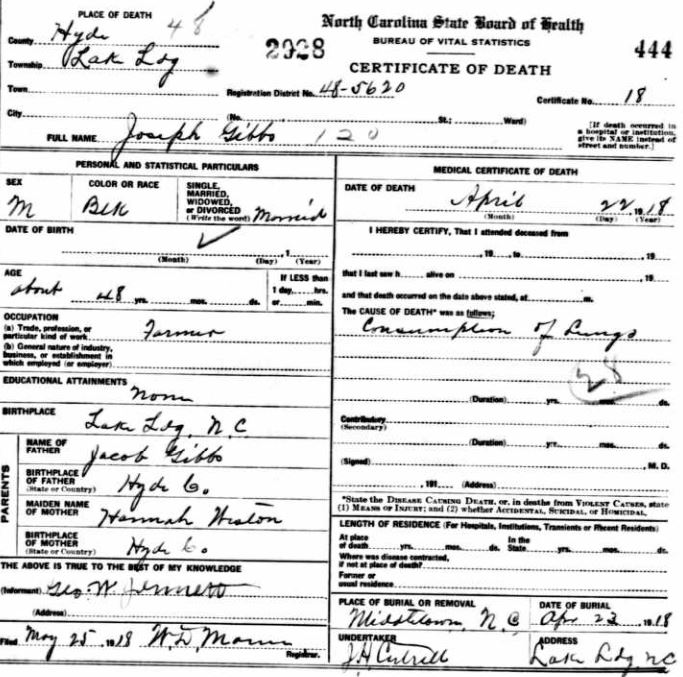 PLACE OF DEATH 48
North Carolina State Board of Health
County Hyde
2928
BUREAU OF VITAL STATISTICS
444
Township Lak Ldg
CERTIFICATE OF DEATH
Town
Registration District No. 48-5620
Certificate No. 18
City
(No. St.; Ward)
FULL NAME Joseph Gibbs 120
[If death occurred in
a hospital or institution,
give its NAME instead of
street and number.]
PERSONAL AND STATISTICAL PARTICULARS
SEX
M
COLOR OR RACE
Blk
SINGLE,
MARRIED,
WIDOWED,
or DIVORCED
(Write the word) Married
DATE OF BIRTH
(Month) (Day) 1 (Year)
AGE
about 48 yrs. mos. ds.
If LESS than
1 day, hrs.
or min.
OCCUPATION
(a) Trade, profession, or
particular kind of work Farmer
(b) General nature of industry,
business, or establishment in
which employed (or employer)
EDUCATIONAL ATTAINMENTS
None
BIRTHPLACE
Lake Ldg, N.C
PARENTS
NAME OF
FATHER Jacob Gibbs
BIRTHPLACE
OF FATHER
(State or Country) Hyde Co.
MAIDEN NAME
OF MOTHER Hannah Weston
BIRTHPLACE
OF MOTHER
(State or Country) Hyde Co
THE ABOVE IS TRUE TO THE BEST OF MY KNOWLEDGE
(Informant) Geo. W. Jennett
(Address)
Filed May 25 1918 W.D. Mann
Registrar.
MEDICAL CERTIFICATE OF DEATH
DATE OF DEATH
April 22, 1918
(Month) (Day) (Year)
I HEREBY CERTIFY, That I attended deceased from
, 19 , to , 19
that I last saw h alive on , 19
and that death occurred on the date above stated, at m.
The CAUSE OF DEATH* was as follows:
Consumption of Lungs
28
(Duration) yrs. mos. ds.
Contributory
(Secondary)
(Duration) yrs. mos. ds.
(Signed) , M. D.
, 191 (Address)
*State the DISEASE CAUSING DEATH, or, in deaths from VIOLENT CAUSES, state
(1) MEANS OF INJURY; and (2) whether ACCIDENTAL, SUICIDAL, or HOMICIDAL.
LENGTH OF RESIDENCE (For Hospitals, Institutions, Transients or Recent Residents)
At place
of death yrs. mos. ds.
In the
State yrs. mos. ds.
Where was disease contracted,
if not at place of death?
Former or
usual residence
PLACE OF BURIAL OR REMOVAL
Middletown N.C
DATE OF BURIAL
Apr 23 1918
UNDERTAKER
J.H.
ADDRESS
Lake Ldg, NC